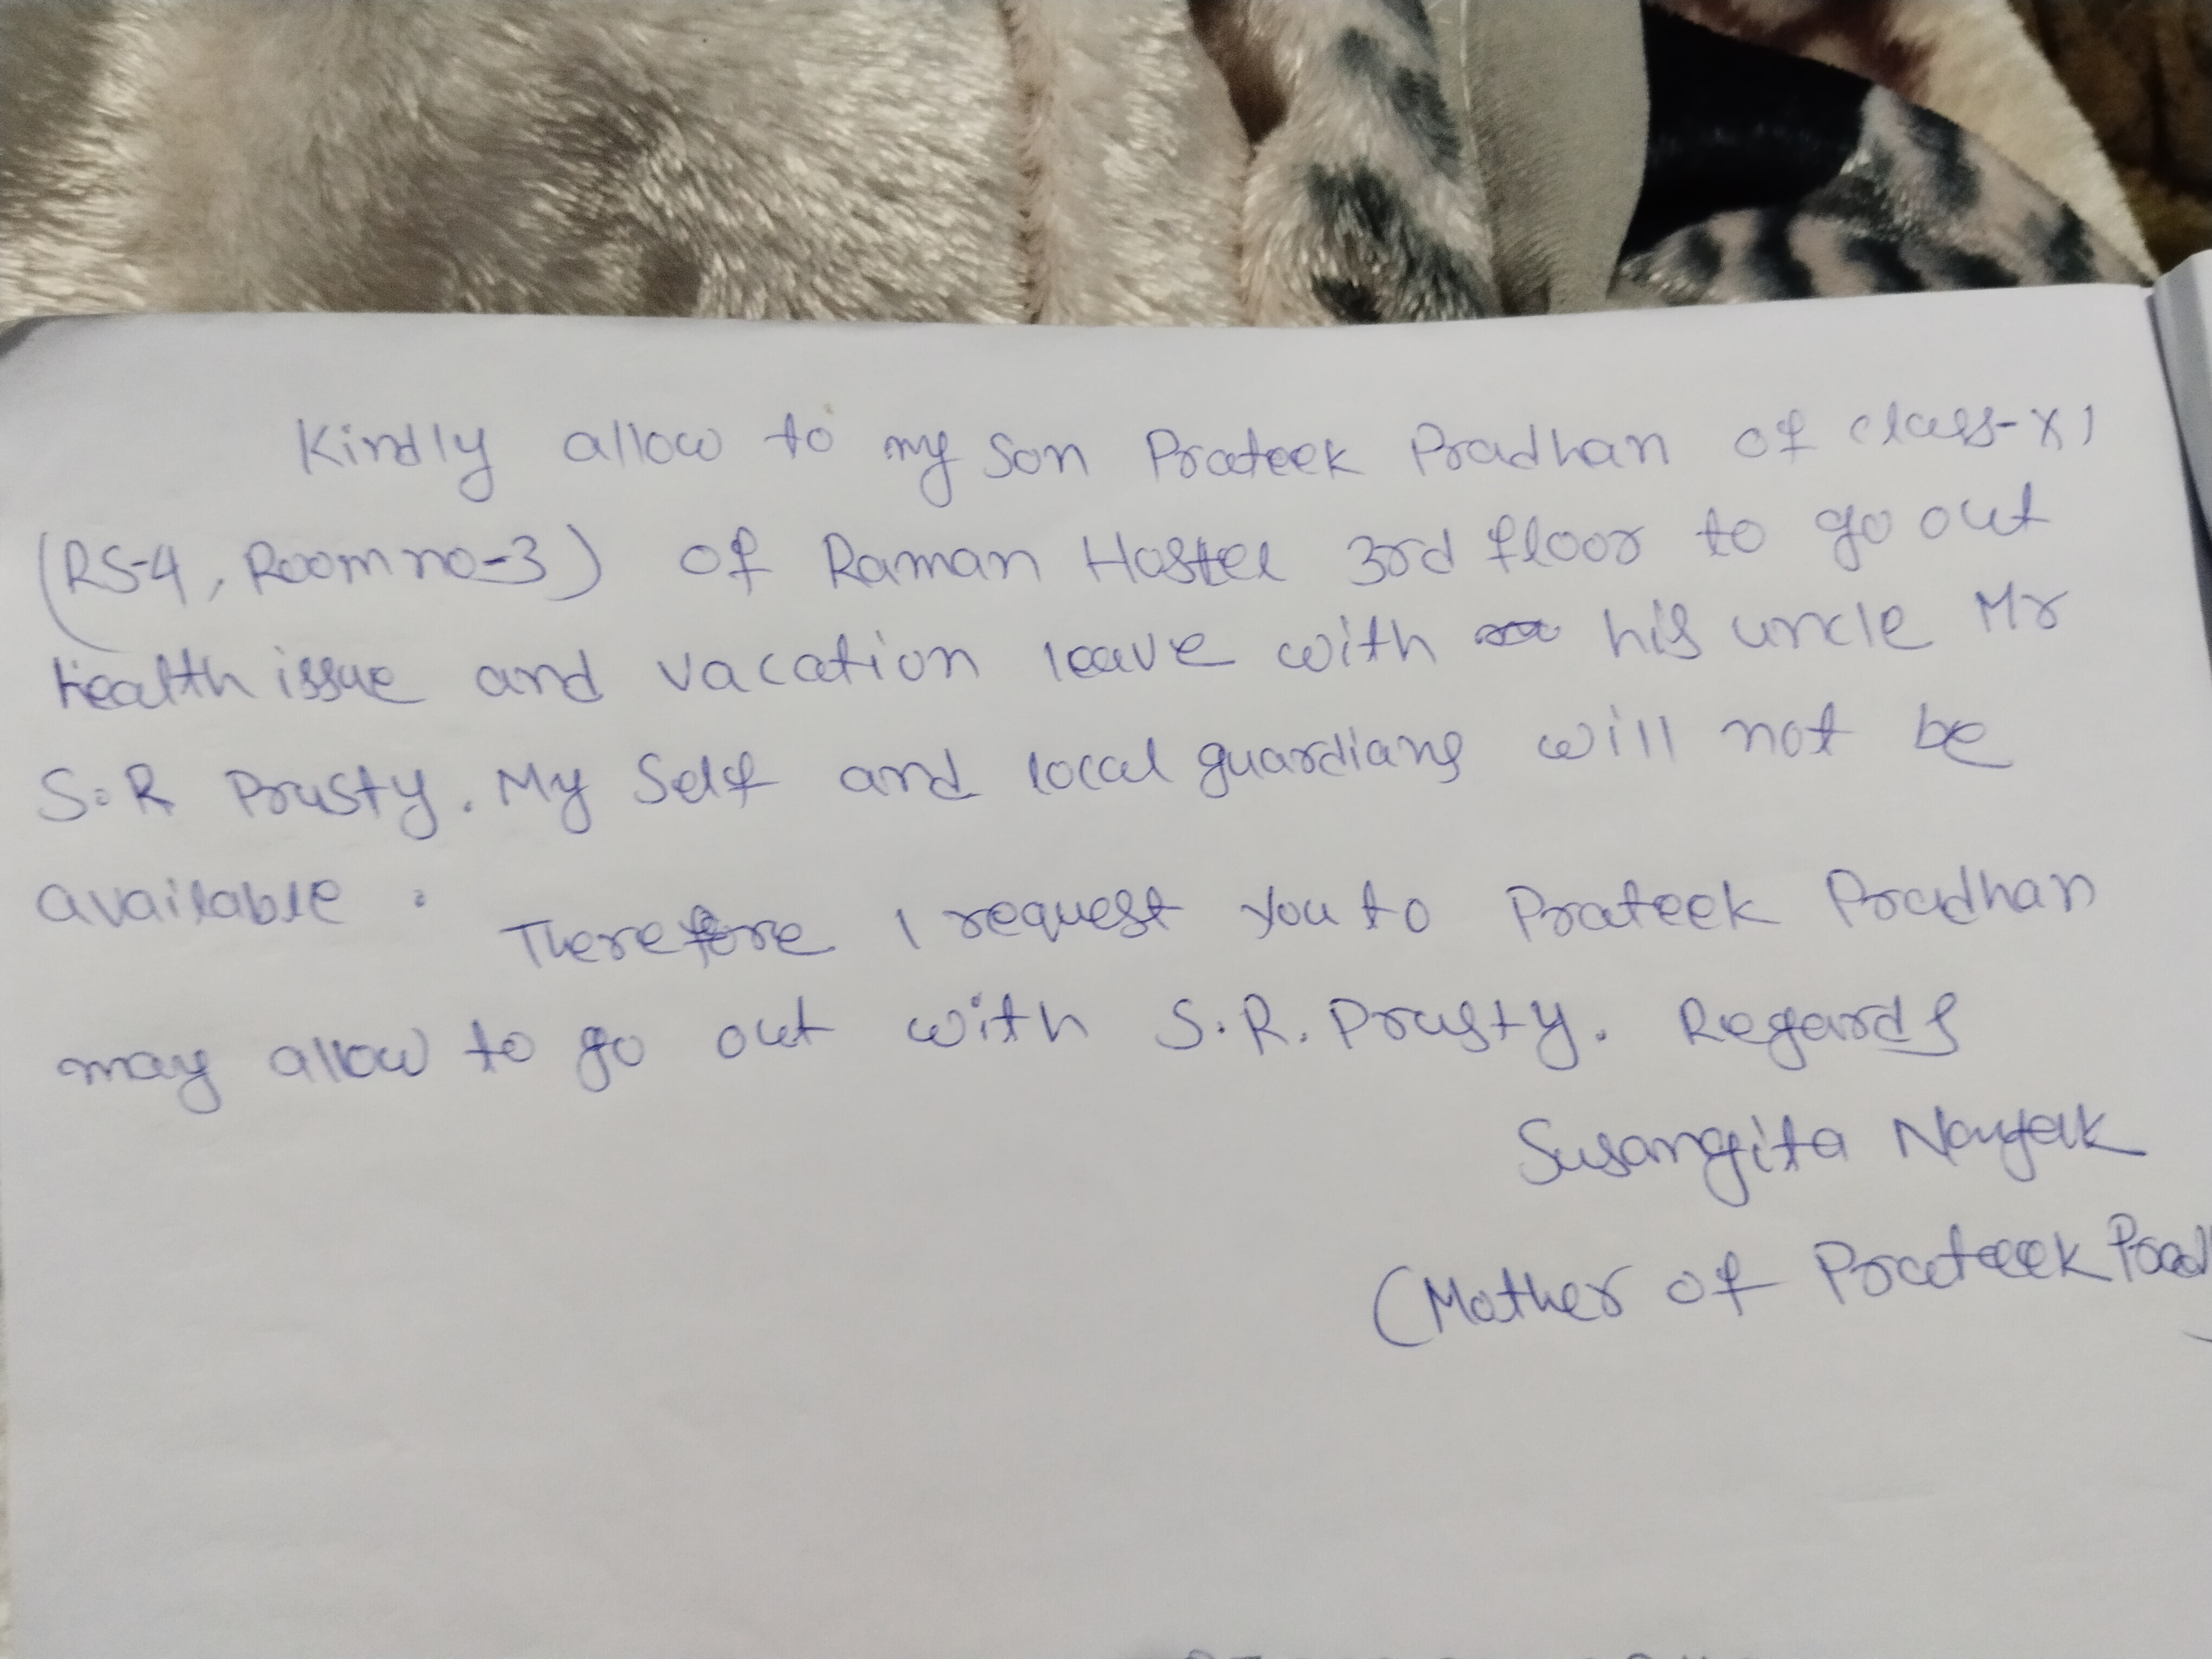 Kindly allow to my son Prateek Pradhan of class-XI
(RS-4, Room no-3) of Raman Hostel 3rd floor to go out
health issue and vacation leave with his uncle Mr
S.R Prusty. My Self and local guardians will not be
available.
Therefore I request you to Prateek Pradhan
may allow to go out with S.R. Prusty. Regards
Susangita Nayak
(Mother of Prateek